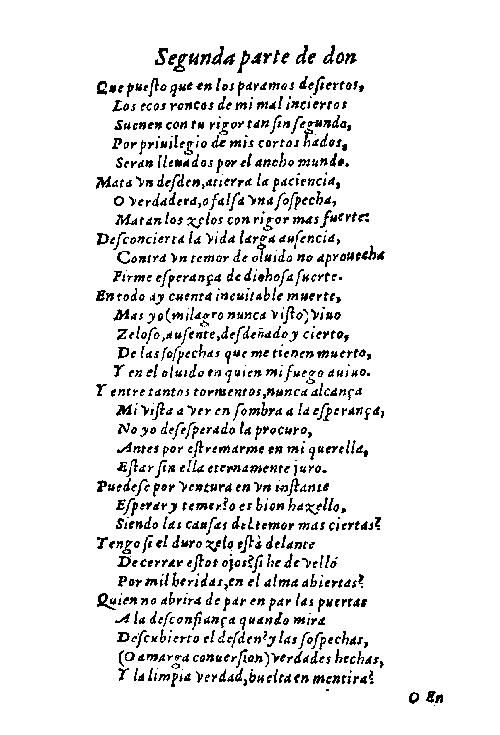 Segunda parte de don
Que pueſto que en los paramos deſiertos,
Los ecos roncos de mi mal inciertos
Suenen con tu rigor tan ſin ſegundo,
Por priuilegio de mis cortos hados,
Seran lleuados por el ancho mundo.
Mata vn deſden, atierra la paciencia,
O verdadera, o falſa vna ſoſpecha,
Matan los zelos con rigor mas fuerte:
Deſconcierta la vida larga auſencia,
Contra vn temor de oluido no aprouecha
Firme eſperança de dichoſa ſuerte.
En todo ay cuenta ineuitable muerte,
Mas yo (milagro nunca viſto) viuo
Zeloſo, auſente, deſdeñado y cierto,
De las ſoſpechas que me tienen muerto,
Y en el oluido en quien mi fuego auiuo.
Y entre tantos tormentos, nunca alcança
Mi viſta a ver en ſombra a la eſperança,
No yo deſeſperado la procuro,
Antes por eſtremarme en mi querella,
Eſtar ſin ella eternamente juro.
Puedeſe por ventura en vn inſtante
Eſperar y temer? o es bien hazello,
Siendo las cauſas del temor mas ciertas?
Tengo ſi el duro zelo eſtà delante
De cerrar eſtos ojos? ſi he de vello
Por mil heridas, en el alma abiertas?
Quien no abrira de par en par las puertas
A la deſconfiança quando mira
Deſcubierto el deſden? y las ſoſpechas,
(O amarga conuerſion) verdades hechas,
Y la limpia verdad, buelta en mentira?
O En